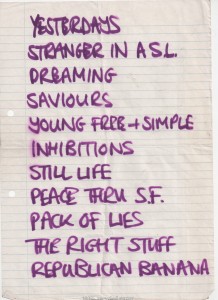 YESTERDAYS
STRANGER IN A S.L.
DREAMING
SAVIOURS
YOUNG FREE + SIMPLE
INHIBITIONS
STILL LIFE
PEACE THRU S.F.
PACK OF LIES
THE RIGHT STUFF
REPUBLICAN BANANA